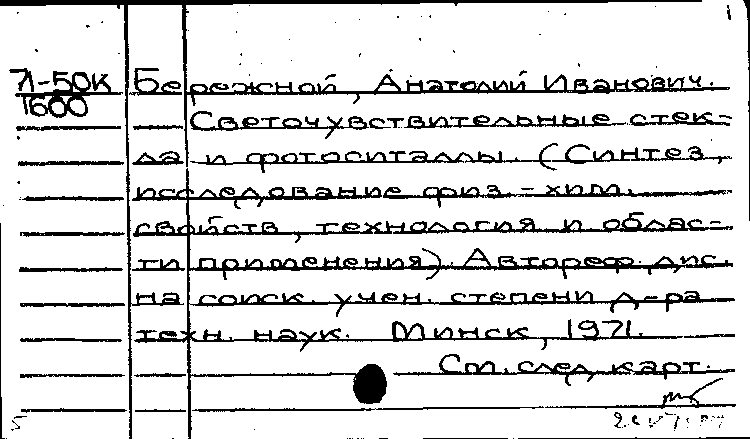 71-50К Бережной, Анатолий Иванович.
1600
Светочувствительные стек-
ла и фотоситаллы. (Синтез,
исследование физ.-хим.
свойств, технология и облас-
ти применения). Автореф. дис.
на соиск. учен. степени д-ра
техн. наук. Минск, 1971.
См. след. карт.